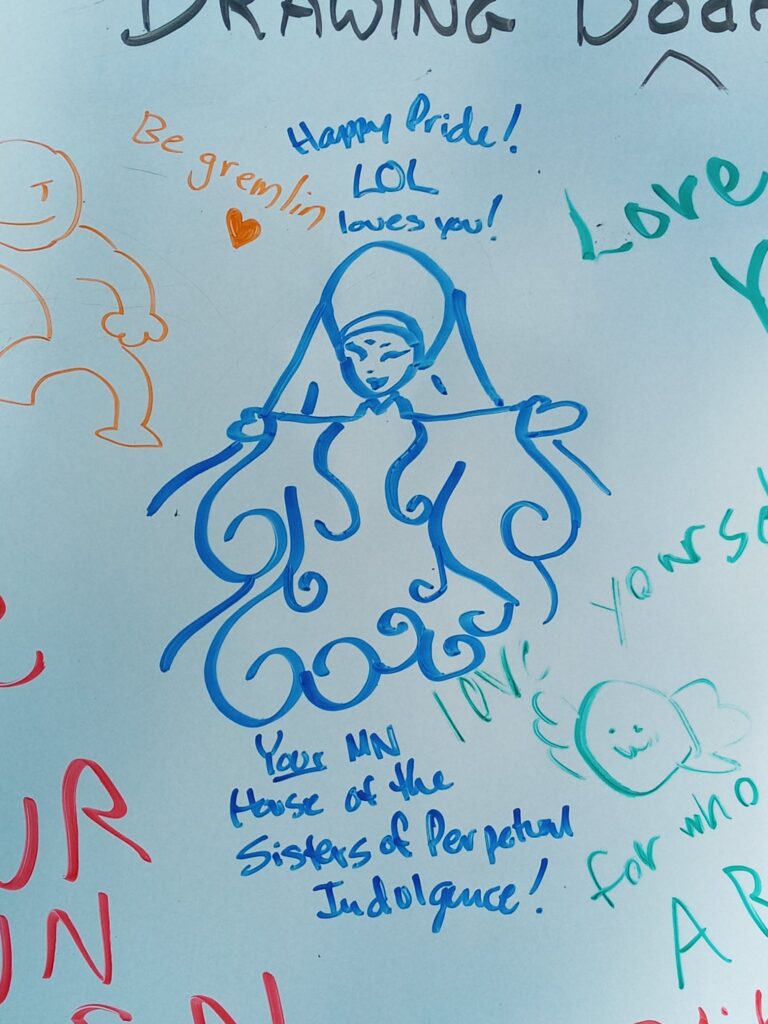 DRAWING
Be gremlin
Happy Pride!
LOL
loves you!
Love
love yourself
for who
Your MN
House of the
Sisters of Perpetual
Indulgence!
UR